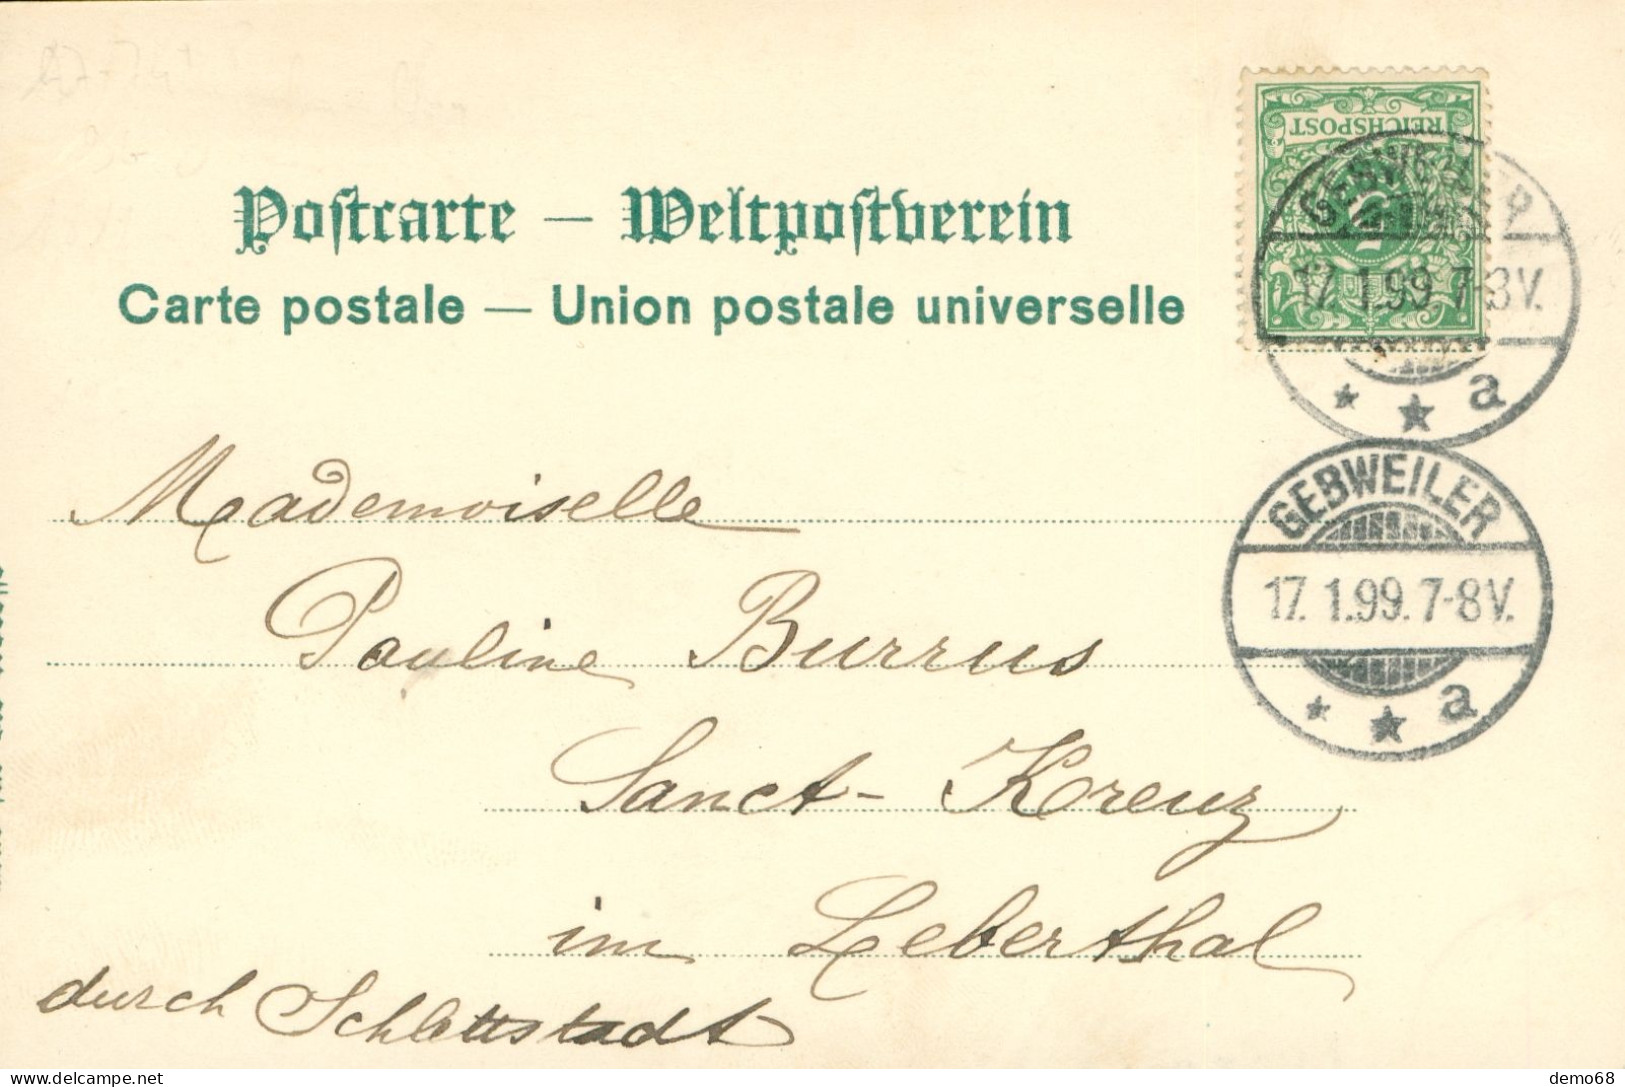 Postcarte — Weltpostverein
Carte postale — Union postale universelle
REICHSPOST
5
GEBWEILER
17. 1.99. 7-8V.
a
GEBWEILER
17. 1.99. 7-8V.
a
Mademoiselle
Pauline Burrus
Sanct-Kreuz
im Leberthal
durch Schlettstadt
demo68